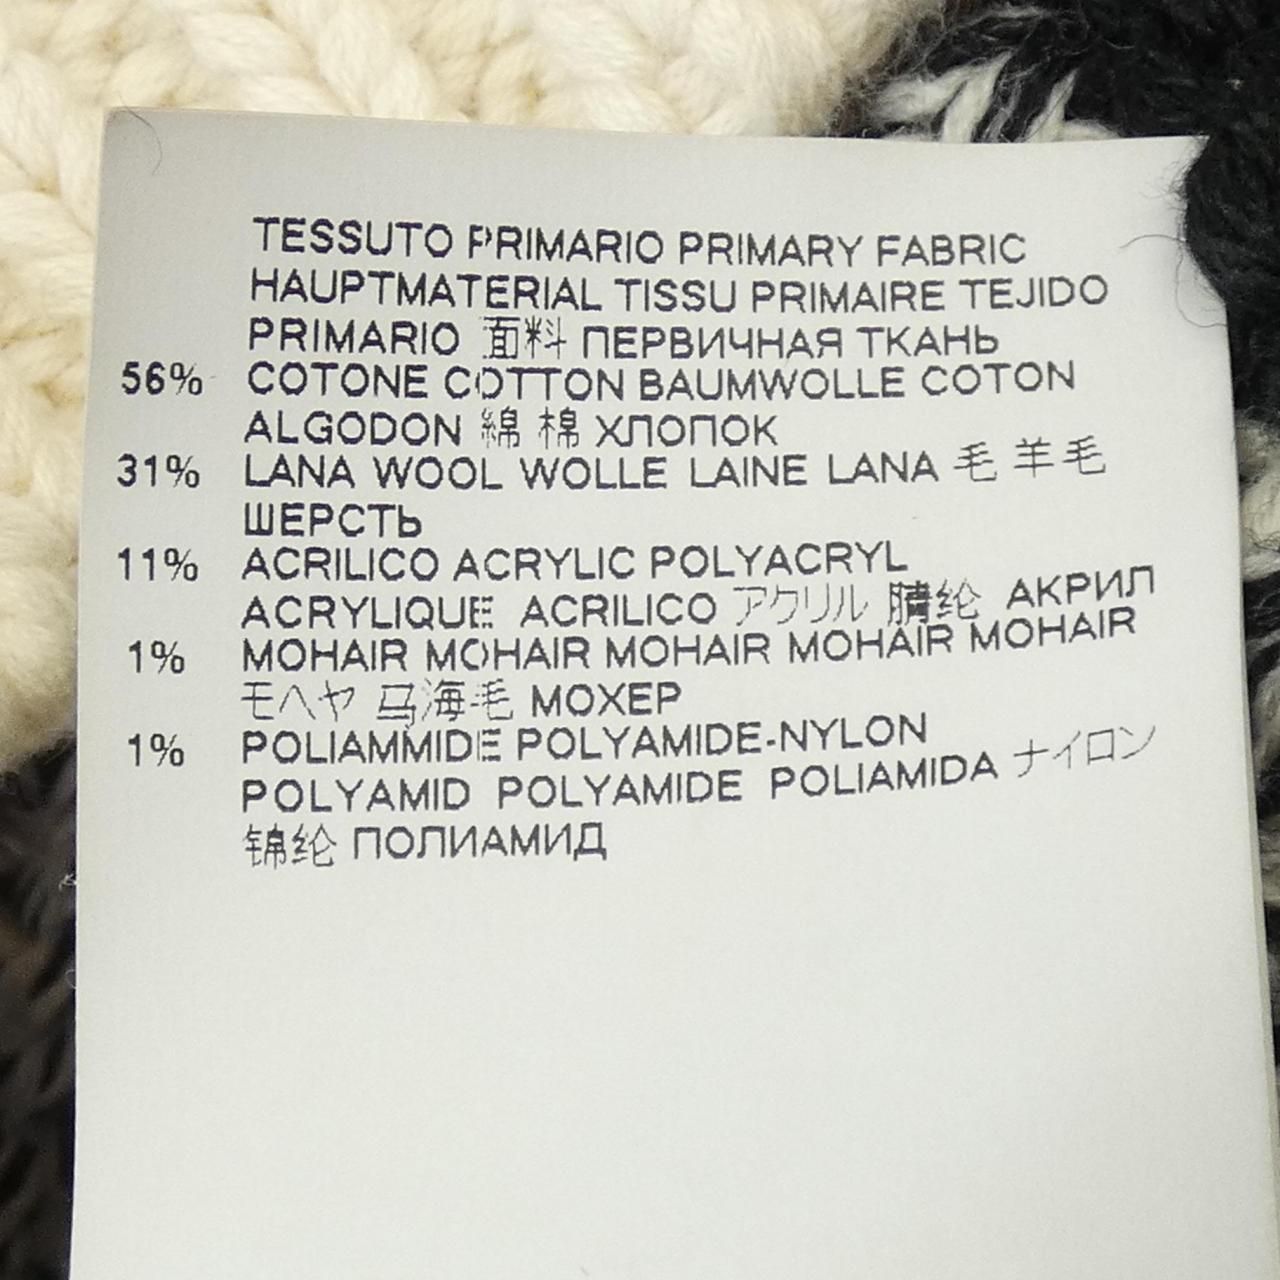 TESSUTO PRIMARIO PRIMARY FABRIC
HAUPTMATERIAL TISSU PRIMAIRE TEJIDO
PRIMARIO 面料 ПЕРВИЧНАЯ ТКАНЬ
56% COTONE COTTON BAUMWOLLE COTON
ALGODON 綿 棉 ХЛОПОК
31% LANA WOOL WOLLE LAINE LANA 毛 羊毛
ШЕРСТЬ
11% ACRILICO ACRYLIC POLYACRYL
ACRYLIQUE ACRILICO アクリル 腈纶 АКРИЛ
1% MOHAIR MOHAIR MOHAIR MOHAIR MOHAIR
モヘヤ 马海毛 МОХЕР
1% POLIAMMIDE POLYAMIDE-NYLON
POLYAMID POLYAMIDE POLIAMIDA ナイロン
锦纶 ПОЛИАМИД